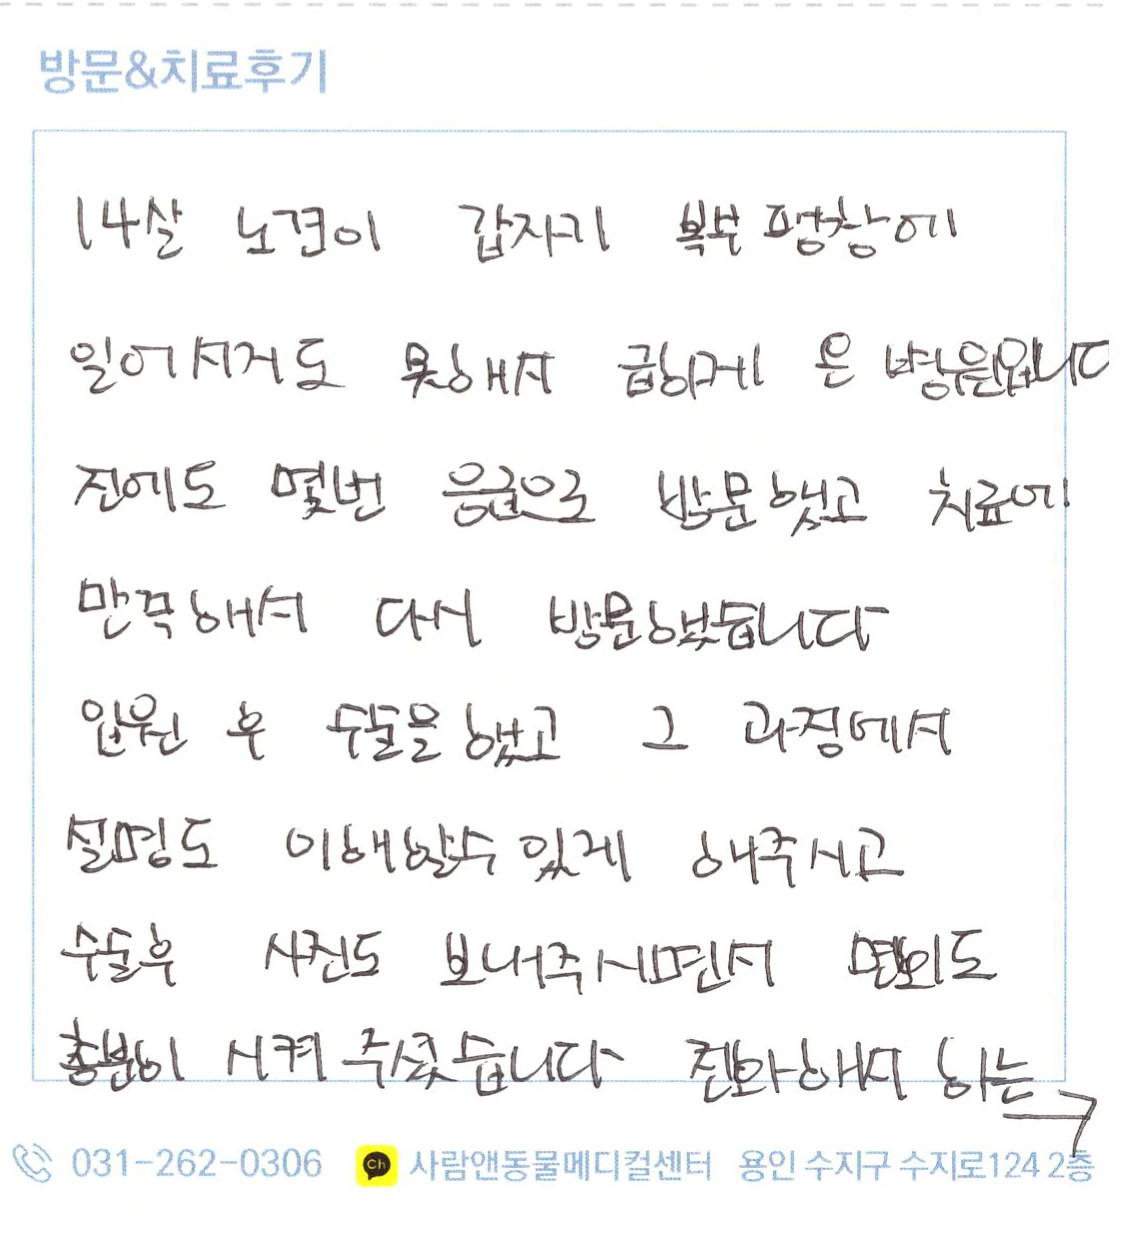 방문&치료후기
14살 노견이 갑자기 복부 팽창에
일어서거도 못해서 급하게 온 병원입니다
전에도 몇번 응급으로 방문했고 치료에
만족해서 다서 방문했습니다
입원 후 수술을 했고 그 과정에서
설명도 이해할수 있게 해주시고
수술후 사진도 보내주시면서 면회도
충분히 시켜 주셨습니다 전화해서 하는
031-262-0306 Ch 사람앤동물메디컬센터 용인 수지구 수지로124 2층